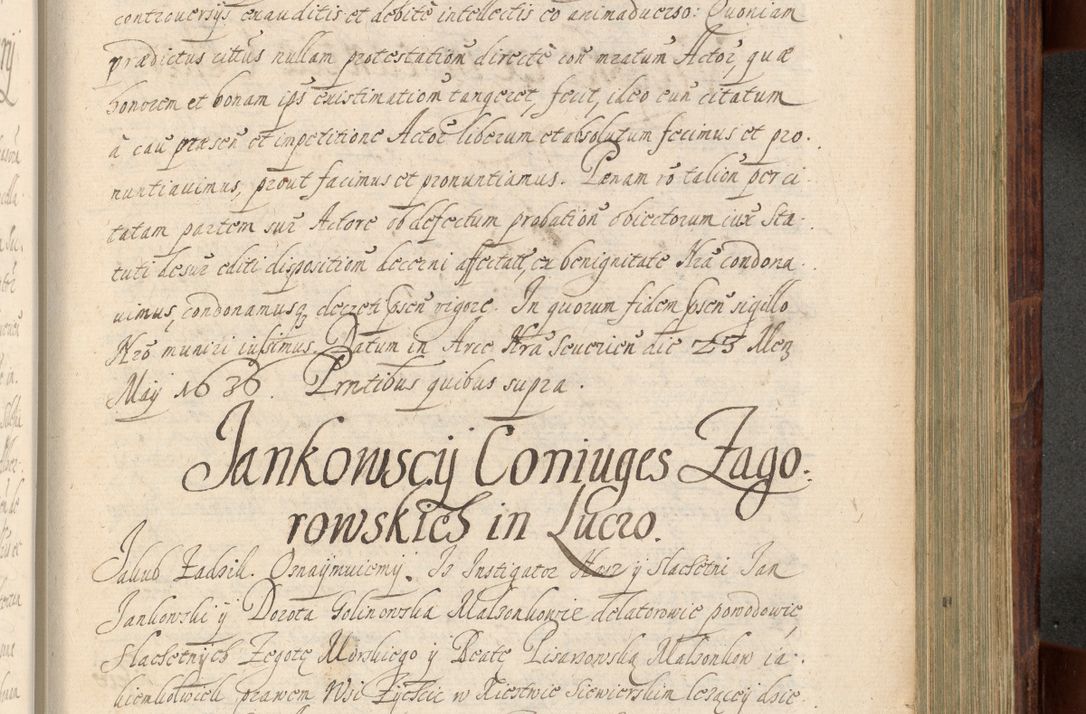 controversijs exauditis et debite intellectis eo animaduerso: Quoniam
prædictus citus nullam protestation directè con mratum Actor, quæ
honorem et bonam ips existimation tangeret, fecit, ideo eun citatum
à cau præsen et impetitione Actor liberum et absolutum fecimus et pro-
nuntiauimus, prout facimus et pronuntiamus. Pænam ro talion per ci-
tatam partem sur Actore ob defectum probation obiectorum iux Sta-
tuti desur editi disposition decerni affectat, ex benignitate Nra condona-
uimus, condonamusq decreti psen vigore. In quorum fidem psen sigillo
Nro muniri iussimus. Datum in Arce Nra Seuerien die 23 Men
Maij 1636. Prntibus quibus supra.
Jankowscij Coniuges Zago-
rowskich in Lucro.
Jakub Zadzik. Oznaymuiemy. Iz Instigator Nasz y slachetni Jan
Jankowski y Dorota Golinowska Malzonkowie delatorowie powodowie,
Slachetnych Zegotę Morskiego y Beatę Pisarzowską Malzonkow ia-
kiemkolwiek prawem Wsi Zyczic w Xiestwie Siewierskim lezącey dzie-